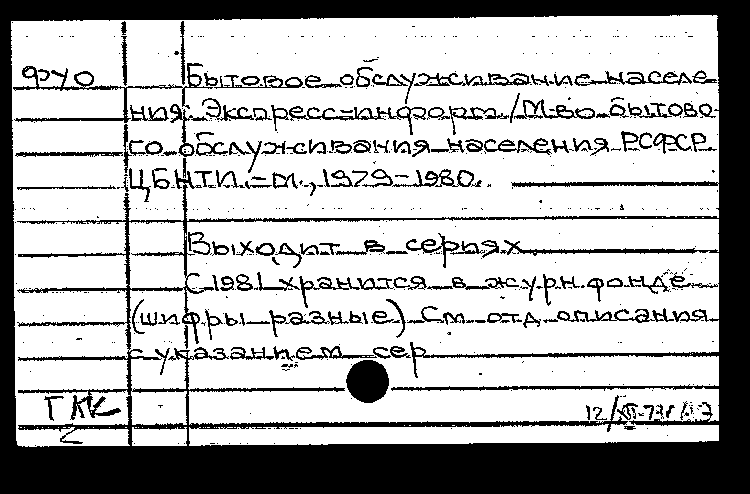 ФУО Бытовое обслуживание населе-
ния: Экспресс-информ. / М-во бытово-
го обслуживания населения РСФСР.
ЦБНТИ. - М., 1979-1980.
Выходит в сериях.
С 1981 хранится в журн. фонде
(шифры разные). См. отд. описания
с указанием сер.
ГКК
2
12/XII-73г.